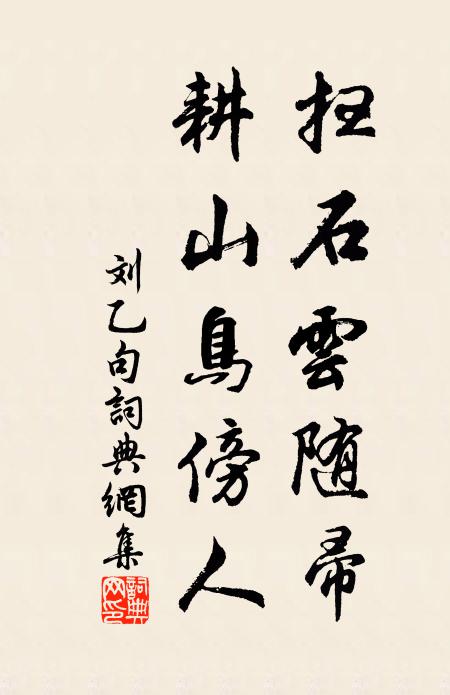 扫石雲随帚
耕山鳥傍人
刘乙句詞典網集
詞典网印